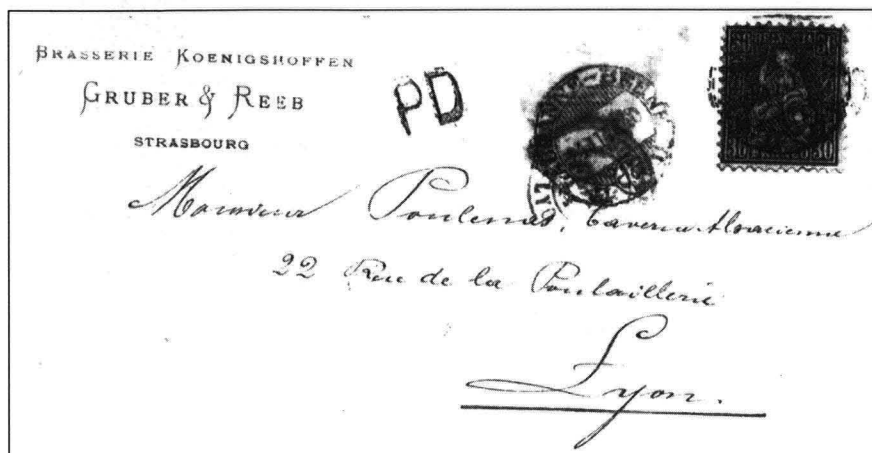 BRASSERIE KOENIGSHOFFEN
GRUBER & REEB
STRASBOURG
PD
30 30
30 30
Monsieur Poulenas, Taverne Alsacienne
22 Rue de la Poulaillerie
Lyon.